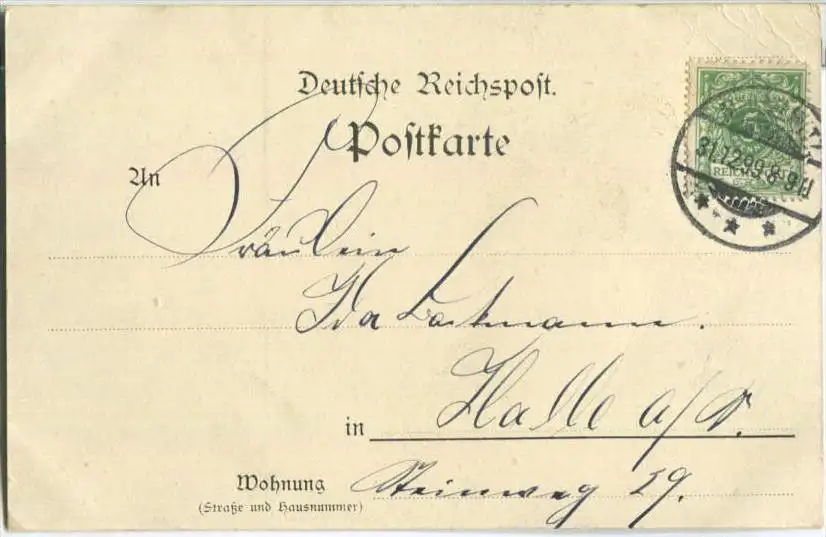 Deutsche Reichspost.
Postkarte
An
Fräulein
Ida
in Halle a/S.
Wohnung Steinweg 29.
(Straße und Hausnummer)
31.12.99. 8-9N
REICHSPOST